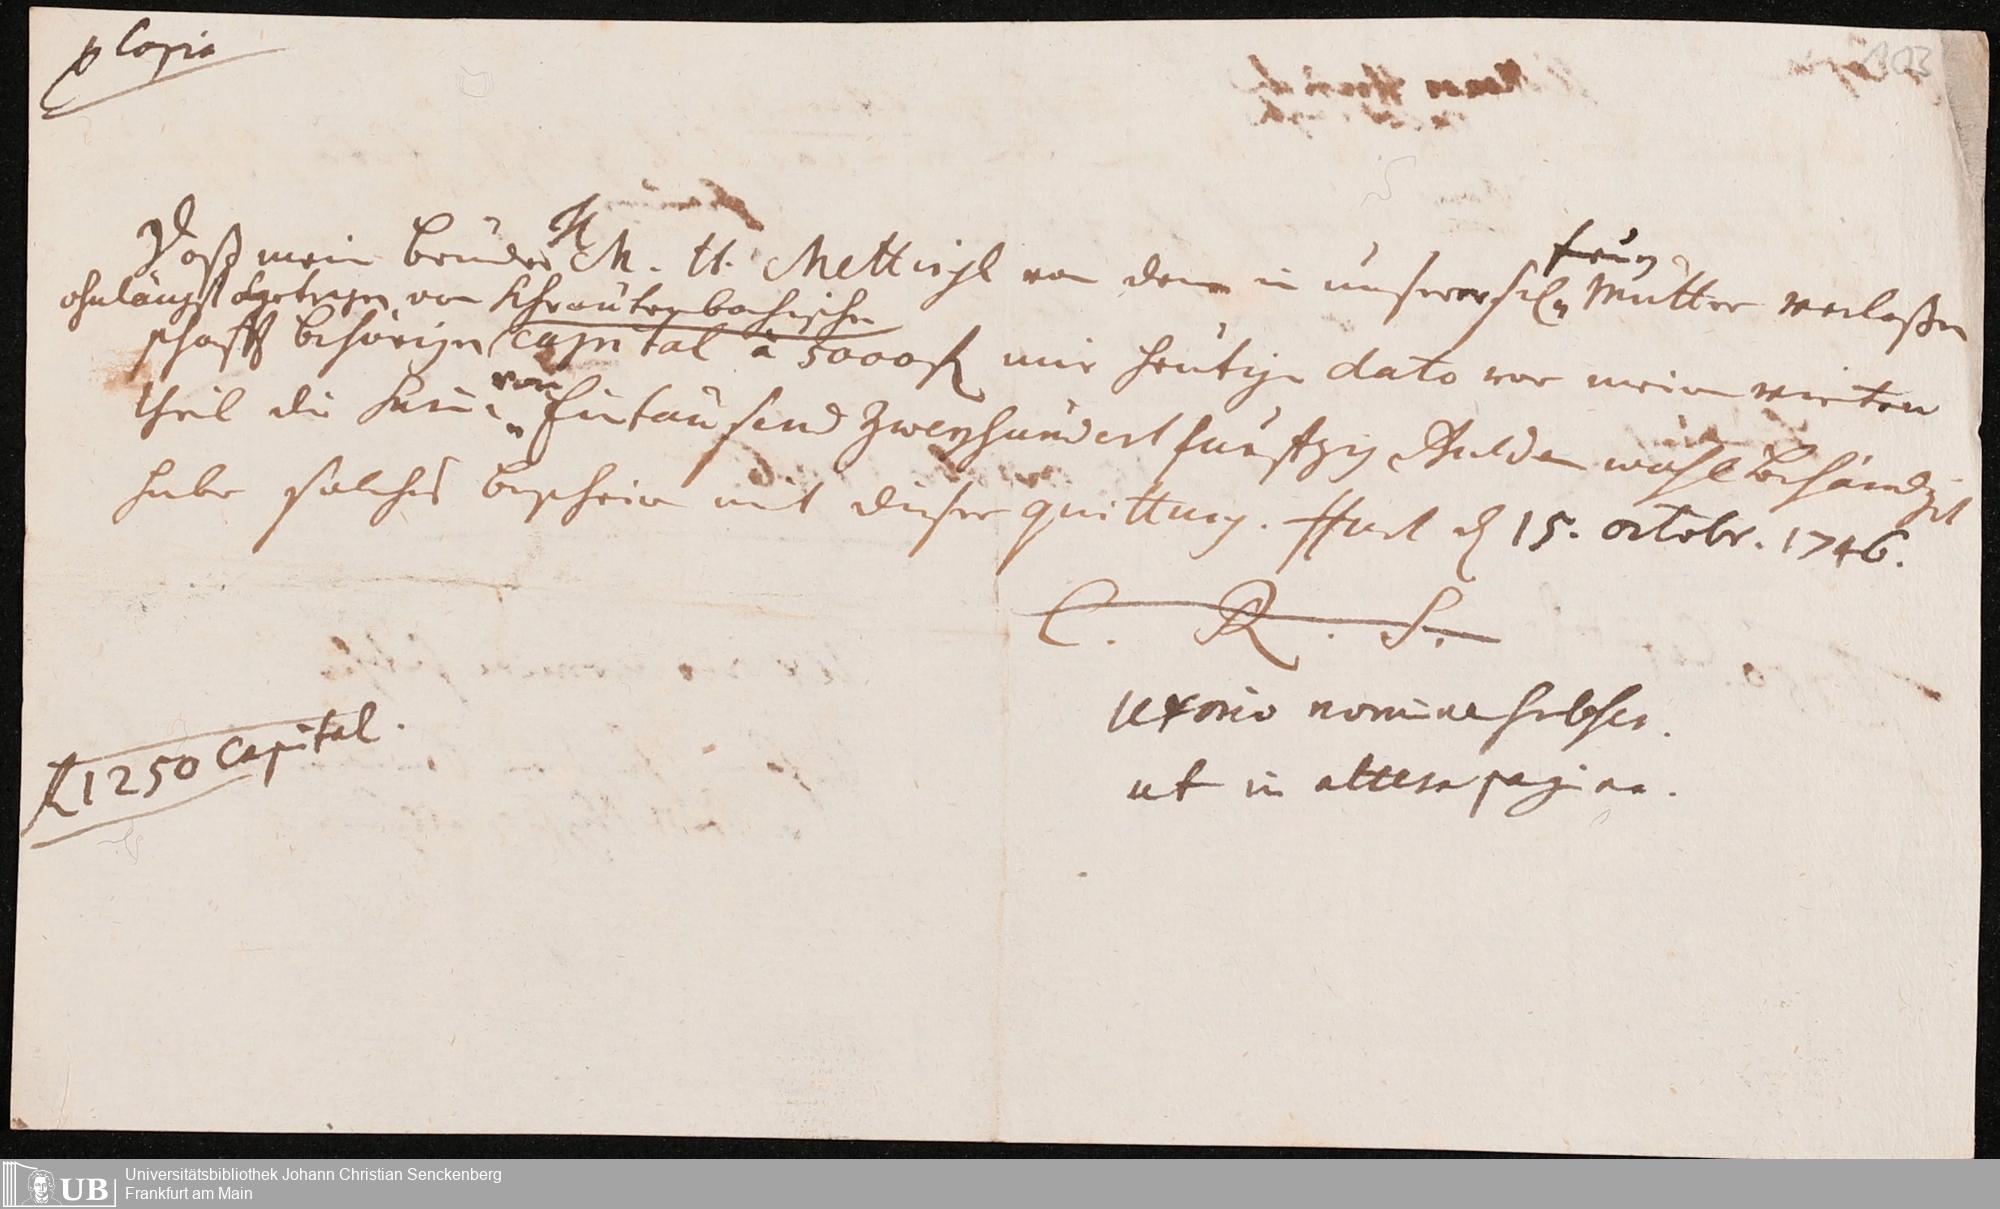 Copia
103
Daß mein Bruder H. M. U. Mettingh von dem in unserer sel. Frau Mutter verlaßen
ohnlängst abgetragen von Schrautenbachischen
schafft behörigen capital à 5000 fl mir heutigen dato vor meinen vierten
theil die Sum̅ von Eintausend Zweyhundert funftzig Gulden wohl behändiget
habe solches bescheine mit dieser quittung. Ffurt d 15. octobr. 1746.
C. R. S.
uxorio nomine subscr.
ut in altera pagina.
fl 1250 Capital.
UB
Universitätsbibliothek Johann Christian Senckenberg
Frankfurt am Main